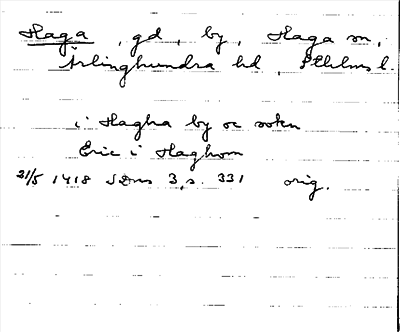 Haga, gd, by, Haga sn,
Ärlinghundra hd, Sthlms l.
i Hagha by oc sokn
Eric i Haghom
21/5 1418 SDns 3, s. 331 orig.